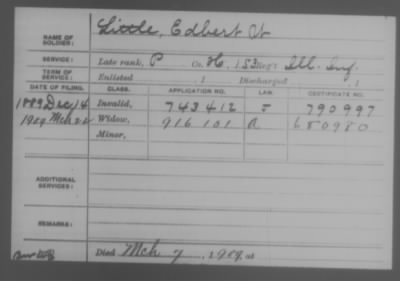 NAME OF SOLDIER: Little, Edbert W
SERVICE: Late rank, P Co. H, 153 Reg't Ill. Inf.
TERM OF SERVICE: Enlisted , 1 Discharged , 1
DATE OF FILING. CLASS. APPLICATION NO. LAW. CERTIFICATE NO.
1889 Dec 14 Invalid, 743412 J 790997
1909 Mch 22 Widow, 916101 A 680980
Minor,
ADDITIONAL SERVICES:
REMARKS:
Died Mch 7, 1909, at